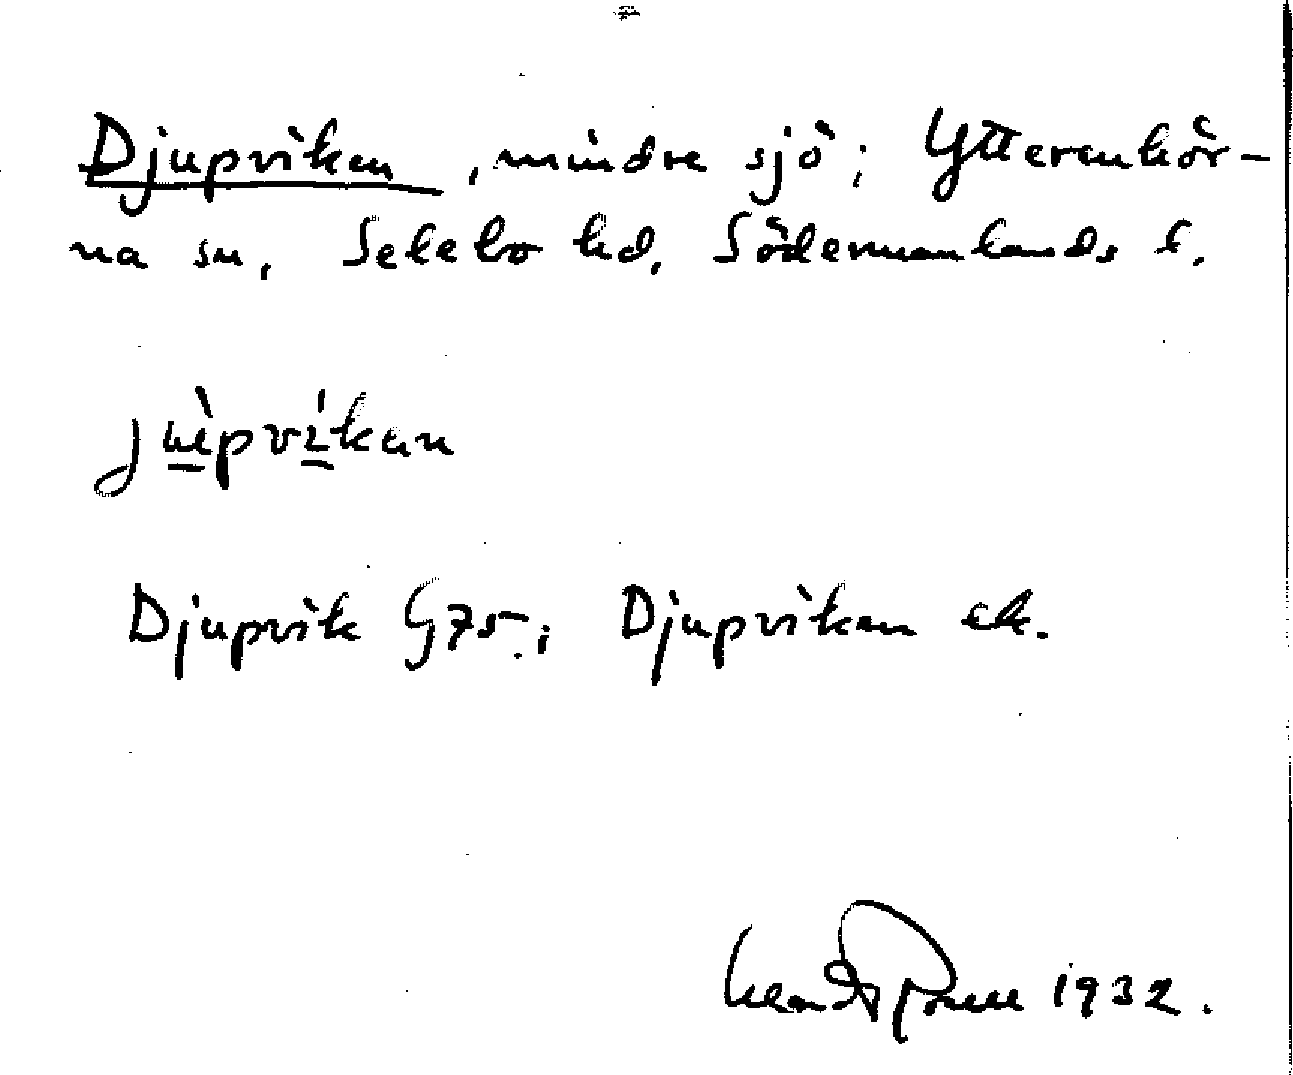 Djupviken, mindre sjö; Ytterenhör-
na sn, Selebo hd, Södermanlands l.
jùpvíkan
Djupvik G75; Djupviken ek.
1932.